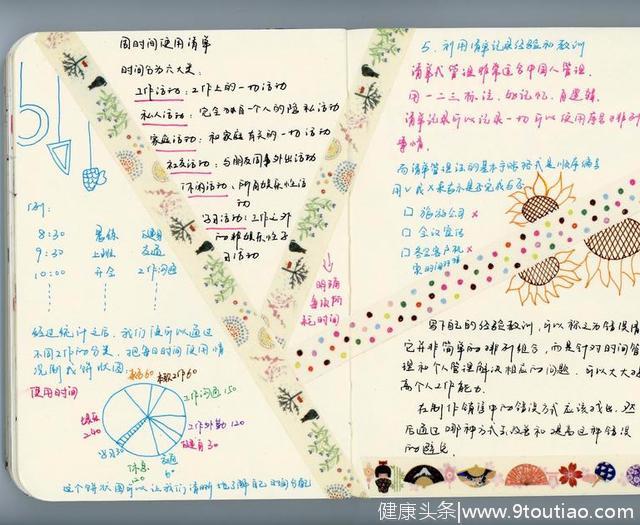 周时间使用清单
时间分为六大类:
工作活动:工作上的一切活动
私人活动:完全独自一个人的隐私活动
家庭活动:和家庭有关的一切活动
社交活动:与朋友同事外出活动
休闲活动:所有娱乐性活动
学习活动:工作之外
的非娱乐性学
习活动
例:
8:30 晨练
9:30 上班 交通
10:00 开会 工作沟通
明确
每块所
耗时间
经过统计之后,我们便可以通过
不同工作的分类,把每日时间使用情
况制成饼状图:
使用时间
工作沟通 150
工作外勤 120
30
娱乐
240
学习30
休息
120
交通
60
这个饼状图可以让我们清晰地了解自己时间分配
5. 利用清单记录经验和教训
清单式管理非常适合中国人管理.
用一二三标注,好记忆,有逻辑.
清单记录可以记录一切可以使用序号排列
事情.
而清单管理法的基本手账格式是顺序编号
用√或×来表示是否完成任务.
□ 旅游公司 ×
□ 会议室
写下自己的经验教训,可以称之为错误清
它并非简单的排列组合,而是针对时间管
理和个人管理解决相应的问题.可以大大提
高个人工作能力.
在制作错误中的错误方式应该找出,然
后通过哪种方式去改善和提高这种错误
的避免.
健康头条|www.9toutiao.com